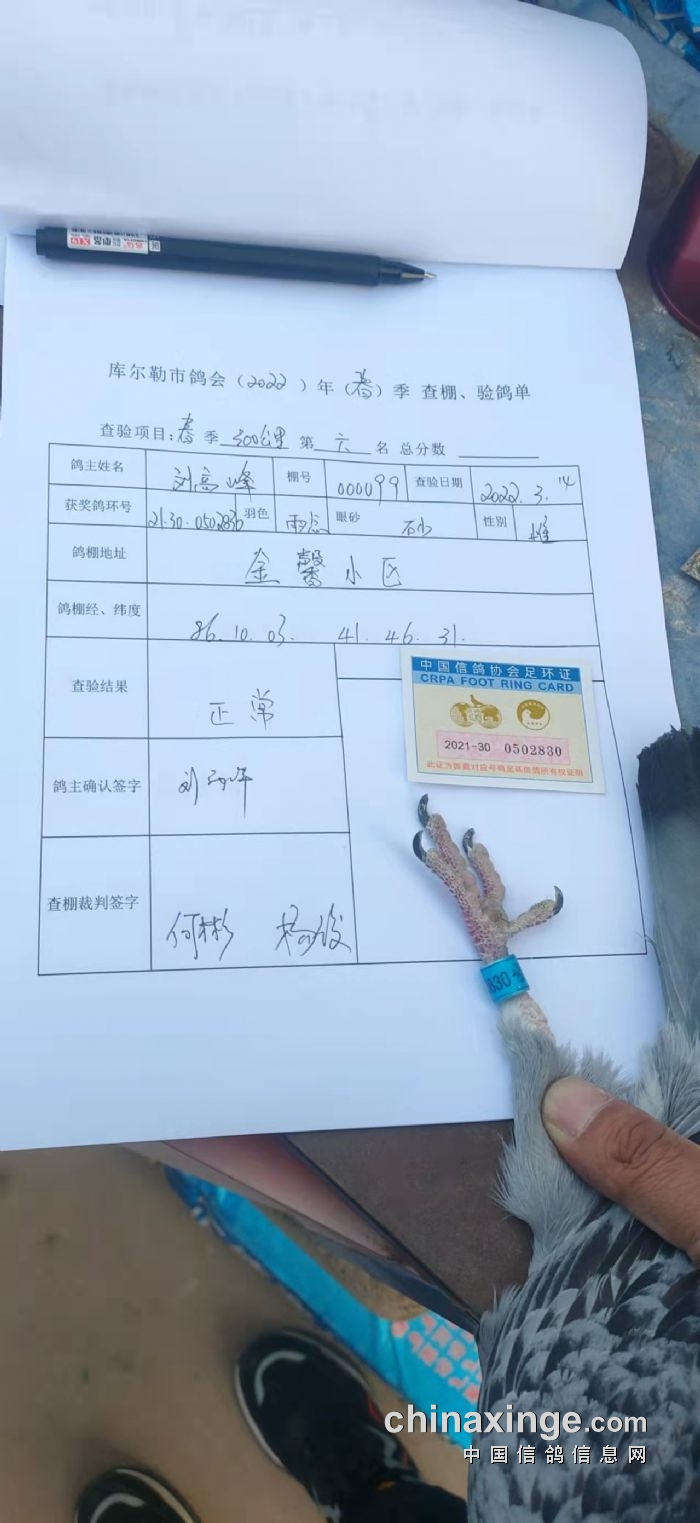 库尔勒市鸽会（2022）年（春）季 查棚、验鸽单
查验项目：春 季 300公里 第 六 名 总分数
鸽主姓名 刘高峰 棚号 000099 查验日期 2022.3.14
获奖鸽环号 21.30.0502830 羽色 雨点 眼砂 砂 性别 雄
鸽棚地址 金馨小区
鸽棚经、纬度 86.10.03. 41.46.31.
查验结果 正常
中国信鸽协会足环证
CRPA FOOT RING CARD
2021-30 0502830
鸽主确认签字 刘高峰
查棚裁判签字 何彬
830
chinaxinge.com
中国信鸽信息网